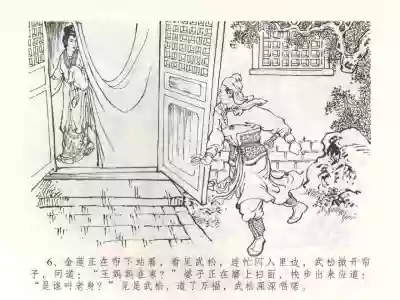 6. 金莲正在帘下站着，看见武松，连忙闪入里边，武松揿开帘
子，问道：“王妈妈在家？”婆子正在磨上扫面，快步出来应道：
“是谁叫老身？”见是武松，道了万福，武松深深唱喏。